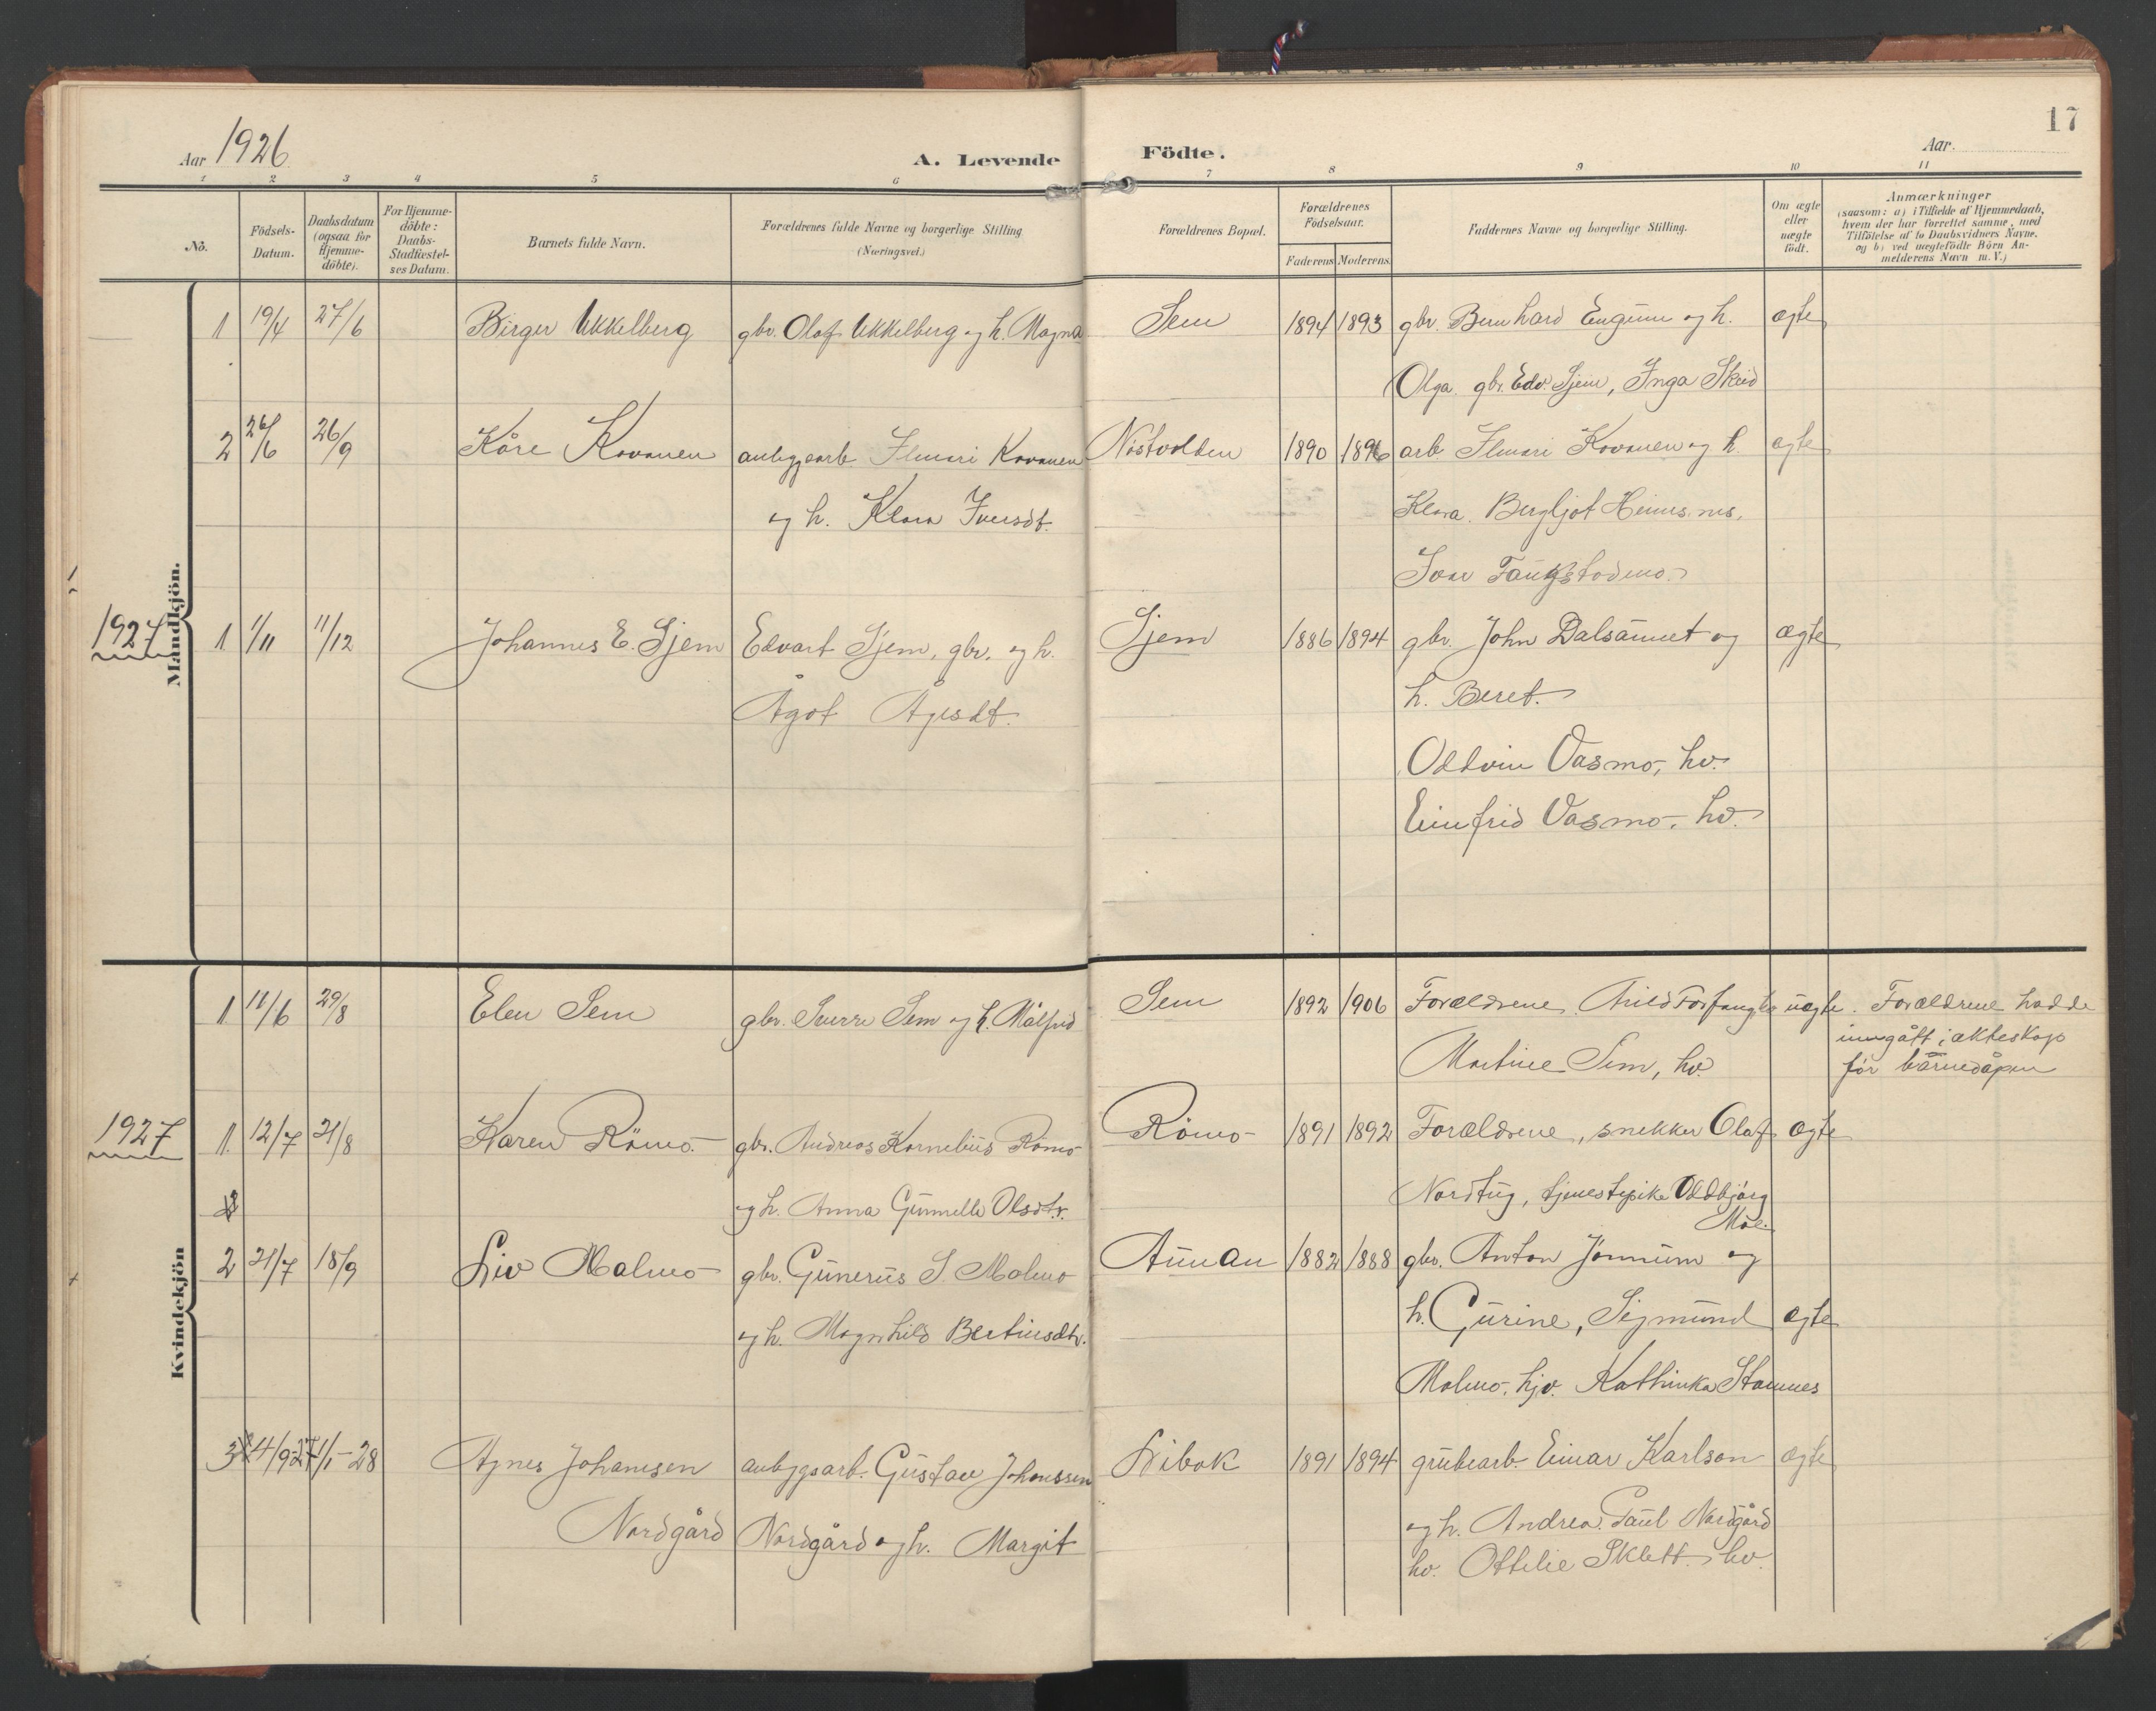 Aar 1926.
A. Levende Födte.
Aar.
17
1 2 3 4 5 6 7 8 9 10 11
No.
Födsels-Datum.
Daabsdatum (ogsaa for Hjemme-döbte).
For Hjemme-döbte: Daabs-Stadfæstel-ses Datum.
Barnets fulde Navn.
Forældrenes fulde Navne og borgerlige Stilling (Næringsvei.)
Forældrenes Bopæl.
Forældrenes Födselsaar.
Faderens Moderens
Faddernes Navne og borgerlige Stilling.
Om ægte eller uægte födt.
Anmærkninger
(saasom: a) i Tilfælde af Hjemmedaab,
hvem der har forrettet samme, med
Tilföielse af to Daabsvidners Navne.
og b) ved uægtefödte Börn An-
melderens Navn m. V.)
Mandkjön.
1 19/4 27/6 Birger Ukkelberg gbr. Olaf Ukkelberg og h. Magna Sem 1894 1893 gbr. Bernhard Eugum og h. ægte
Olga. gbr. Edv. Gjem, Inga Skrid
2 26/6 26/9 Kåre Kovanen anleggsarb Ilmari Kovanen Nostvolden 1890 1896 arb. Ilmari Kovanen og h. ægte
og h. Klara Iversdt. Klara. Bergljot Heimsnes,
1927 1 1/11 11/12 Johannes E. Gjem Edvart Gjem, gbr. og h. Gjem 1886 1894 gbr. John Dalsaunet og ægte
Ågot Ågesdt. h. Beret.
Oddvin Vasmo, hv.
Einfrid Vasmo, hv.
Kvindekjön
1. 11/6 29/8 Elen Sem gbr. Sverre Sem og h. Målfrid Sem 1892 1906 Forældrene. Arild Forfang uægte. Forældrene hadde
inngått i ækteskap
Martine Sem, hv. før barnedåpen
1927 1. 12/7 21/8 Karen Römo gbr. Andreas Kornelius Römo Römo 1891 1892 Forældrene, snekker Olaf ægte
og h. Anna Gunnelle Olsdtr. Nordtug, tjenestepike Oddbjörg
Moe.
2 21/7 18/9 Liv Malmo gbr. Gunerus S. Malmo Aunan 1882 1888 gbr. Anton Jönnum og
og h. Magnhild Bertinsdtr. h. Gurine, Sigmund ægte
Malmo, hjv. Kathinka Stamnes
3 4/9-27 1/1-28 Agnes Johansen anlggsarb. Gustav Johanssen Libak 1891 1894 grubearb. Einar Karlson ægte
Nordgård Nordgård og h. Margit og h. Andrea. Paul Nordgård
hv. Ottilie Sklett. hv.